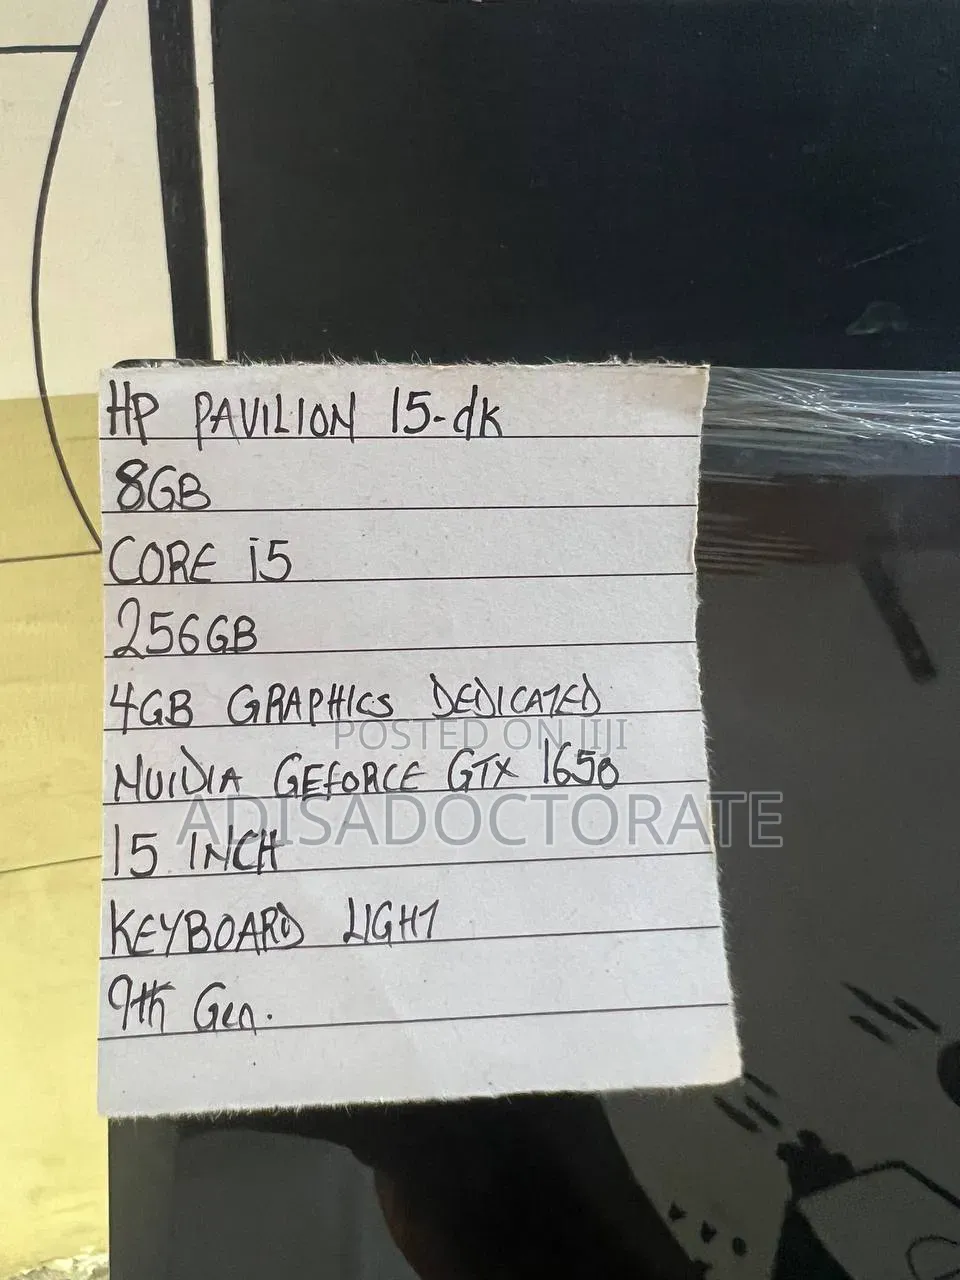 HP PAVILION 15-dk
8GB
CORE i5
256GB
4GB GRAPHICS DEDICATED
POSTED ON JIJI
NVIDIA GEFORCE GTX 1650
ADISADOCTORATE
15 INCH
KEYBOARD LIGHT
9th Gen.